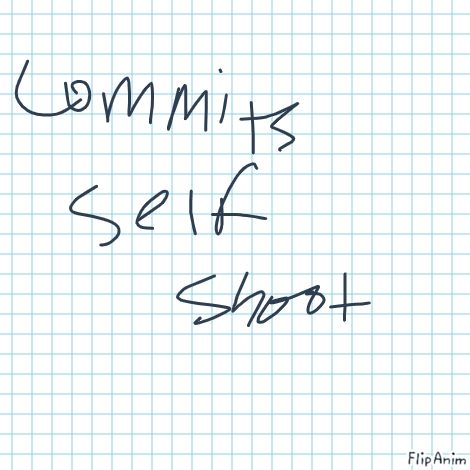 Commits
self
shoot
FlipAnim